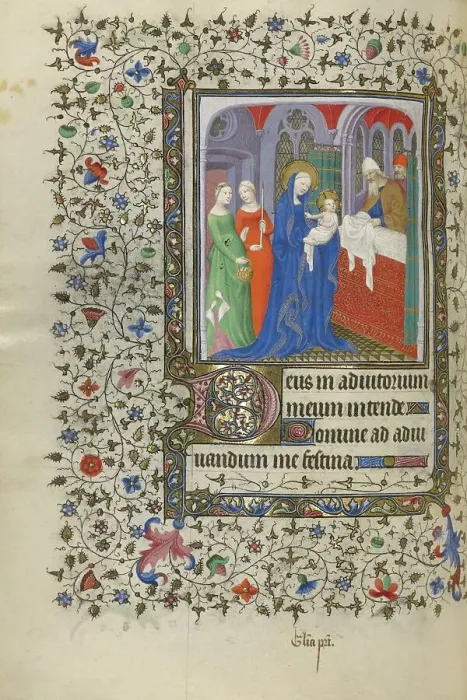 Deus in adiutorium
meum intende
Domine ad adiu
uandum me festina
Glia pri.